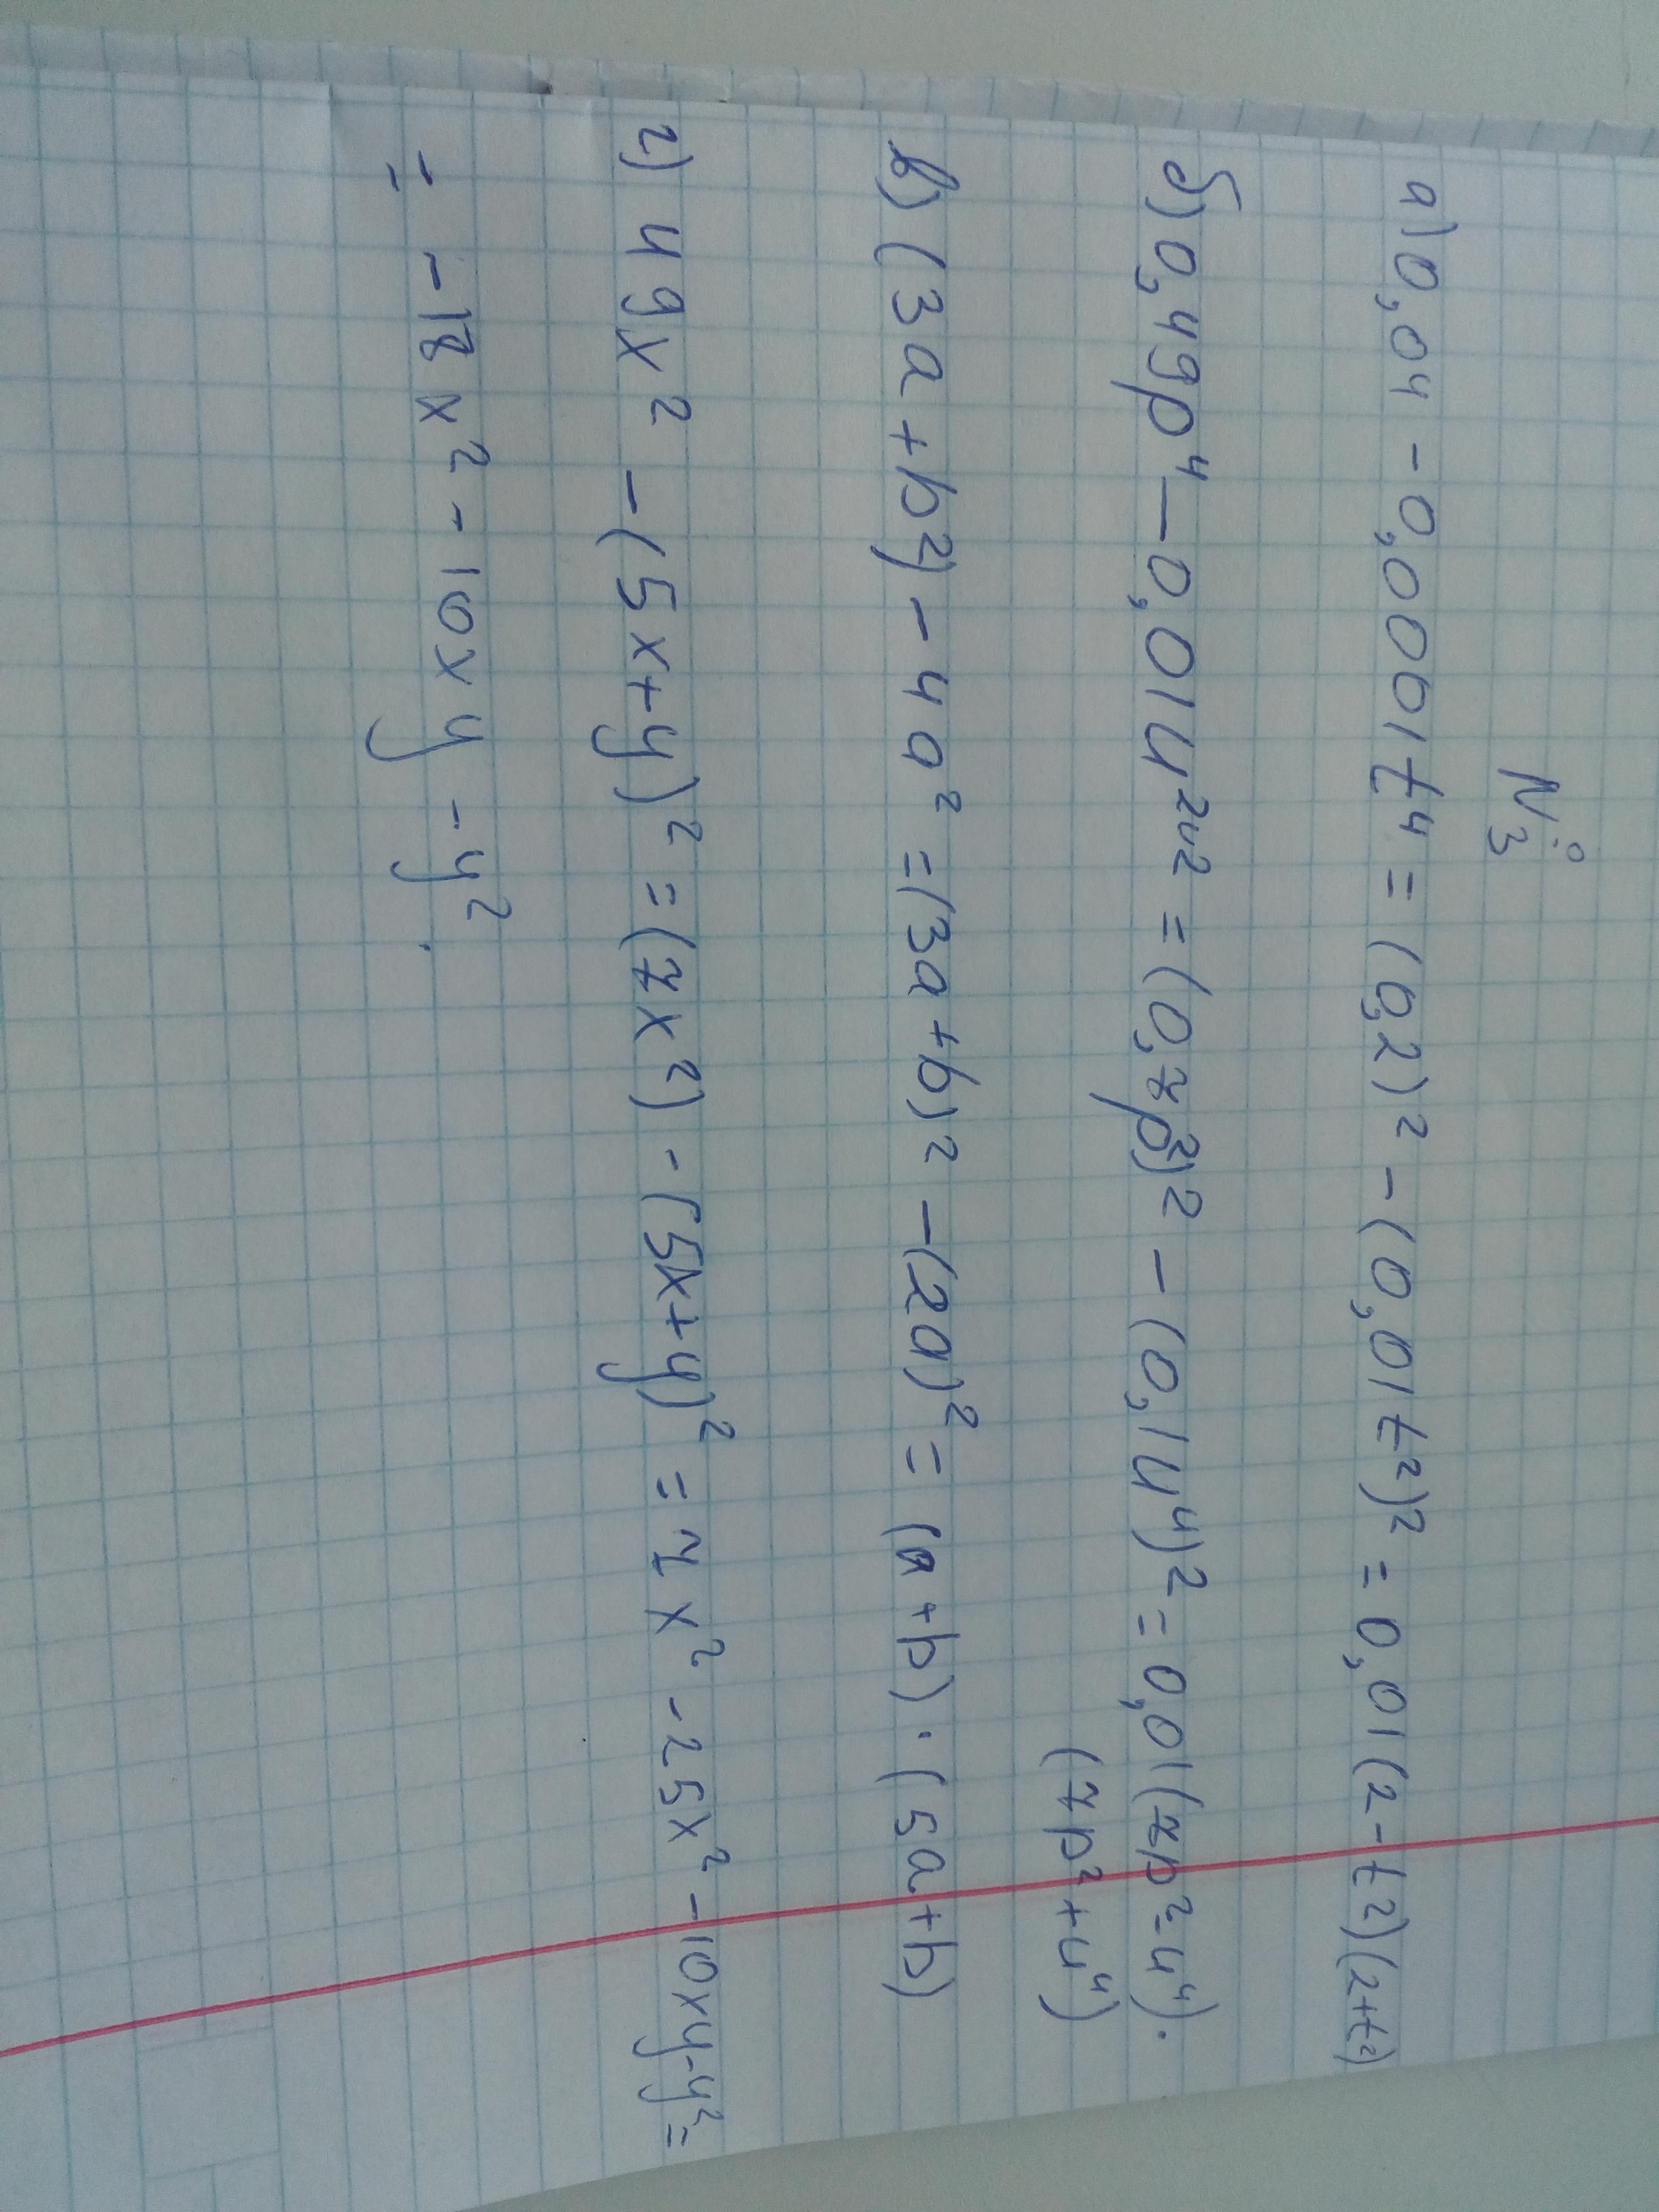 N°3
а) 0,04 - 0,0001t⁴ = (0,2)² - (0,01t²)² = 0,01(2-t²)(2+t²)
б) 0,49p⁴ - 0,01u²u² = (0,7p²)² - (0,1u⁴)² = 0,01(7p²-u⁴)·
(7p²+u⁴)
в) (3a+b²) - 4a² = (3a+b)² - (2a)² = (a+b)·(5a+b)
г) 49x² - (5x+y)² = (7x²) - (5x+y)² = 7x² - 25x² - 10xy - y² =
= -18x² - 10xy - y².